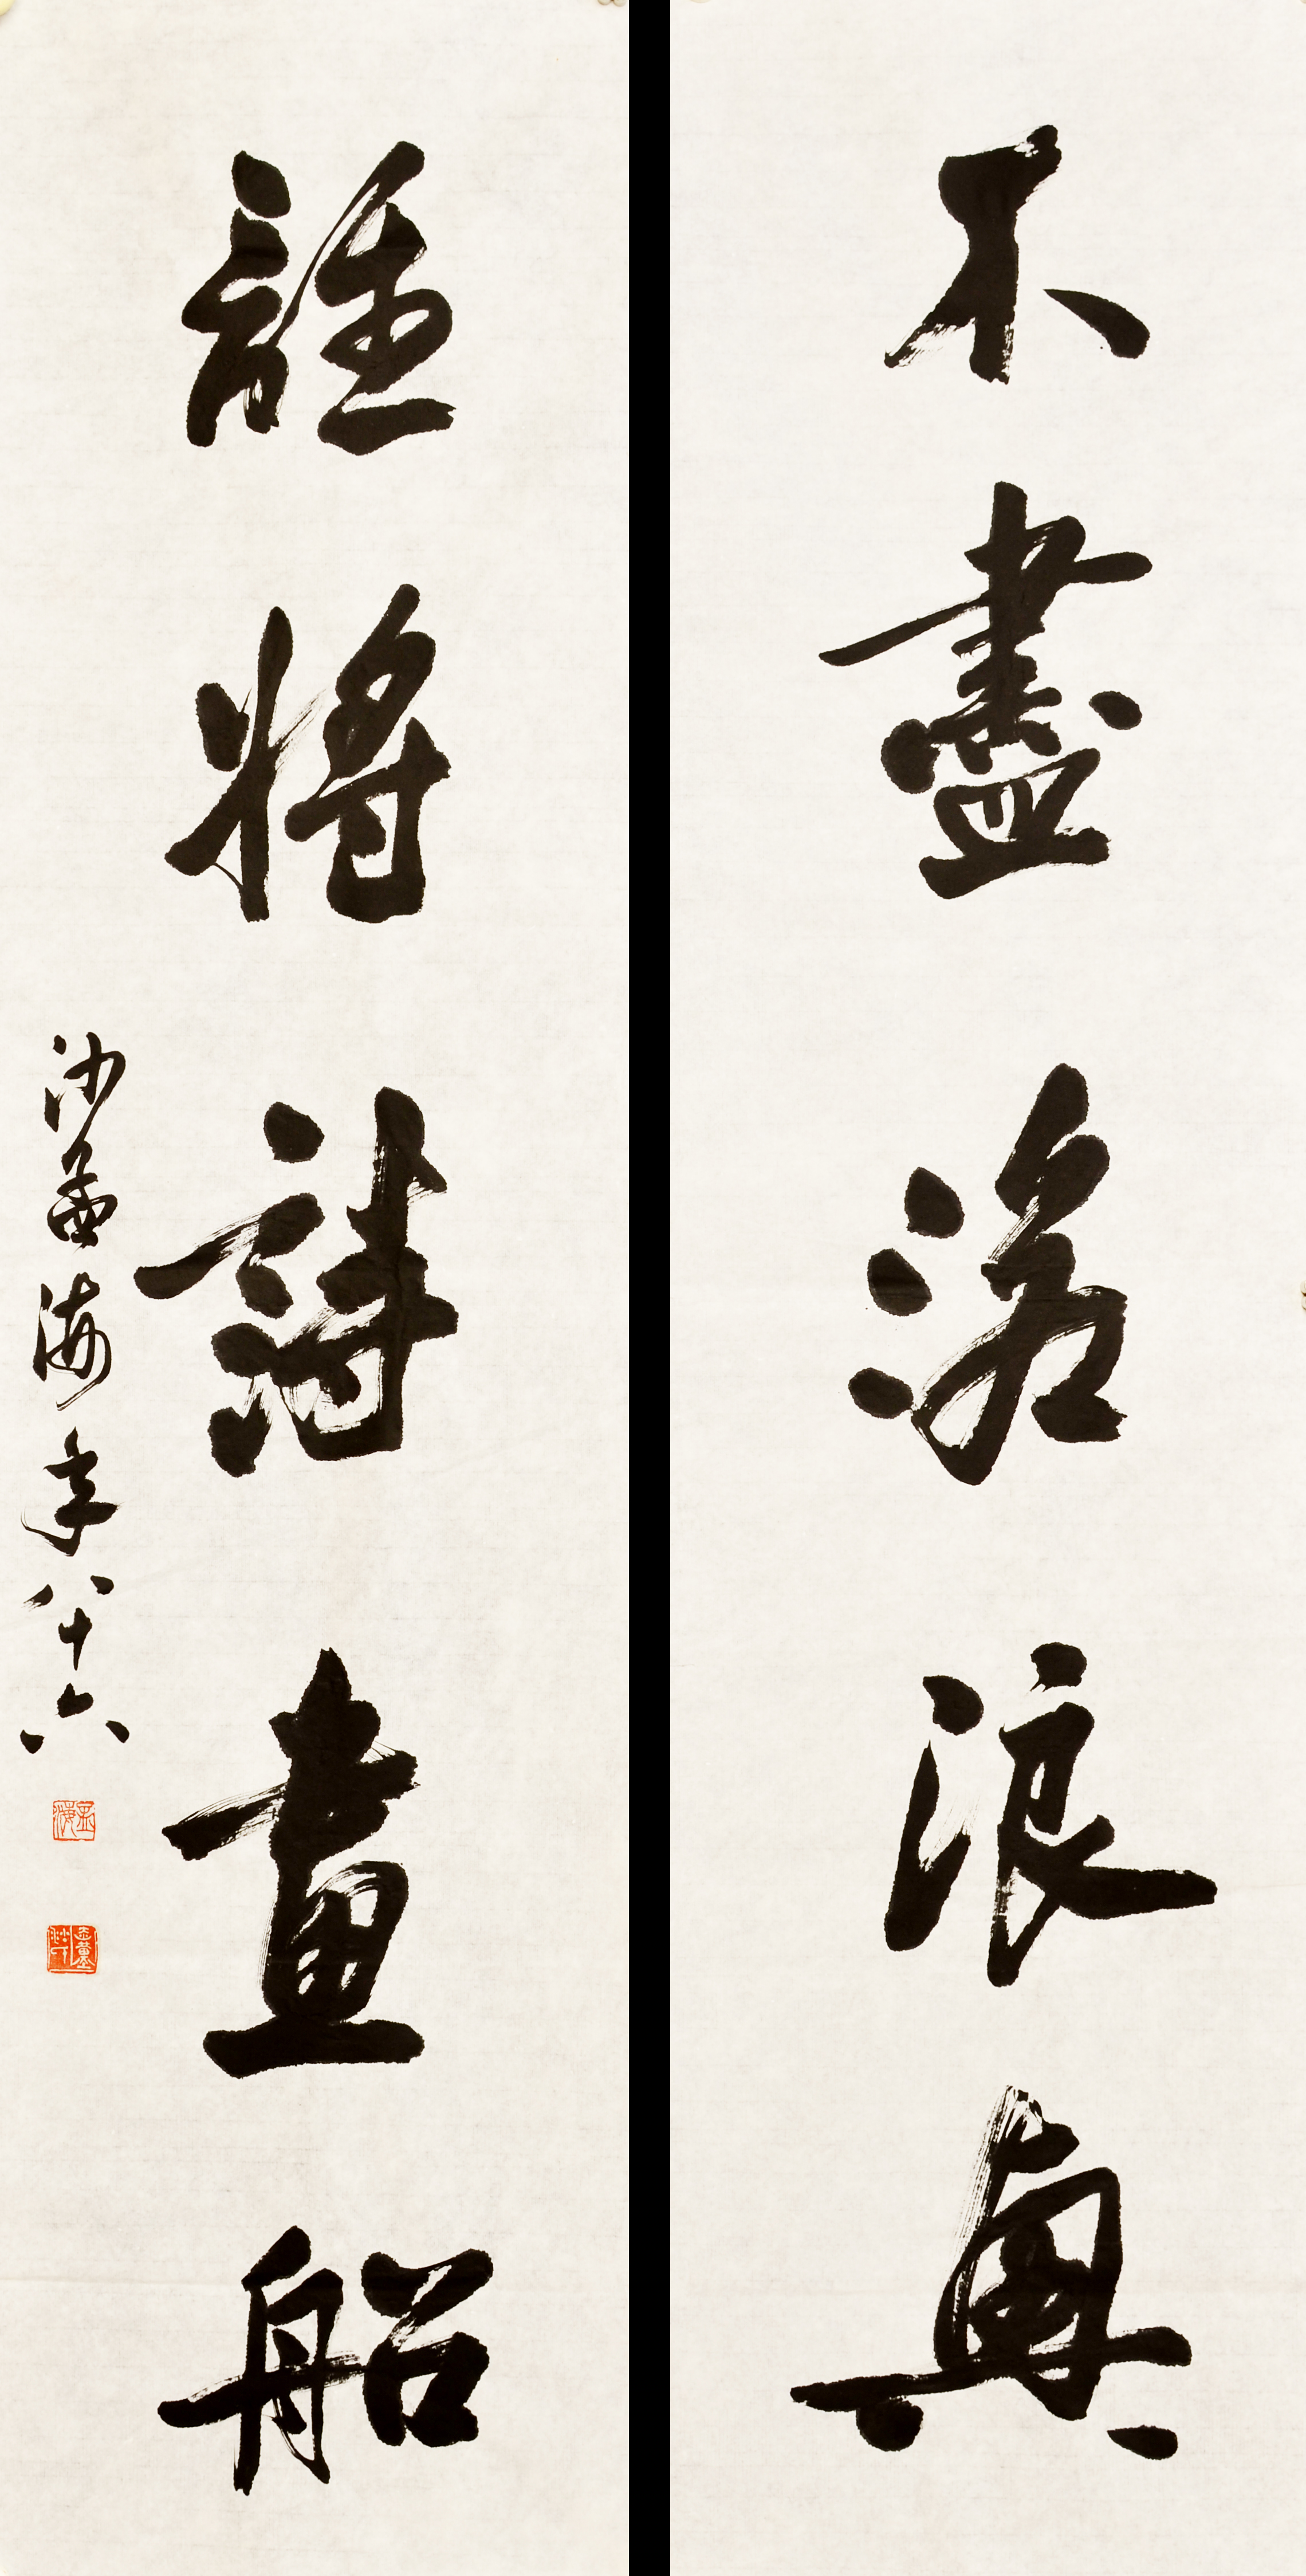 不盡滄浪興
誰將詩畫船
沙孟海年八十六
孟海